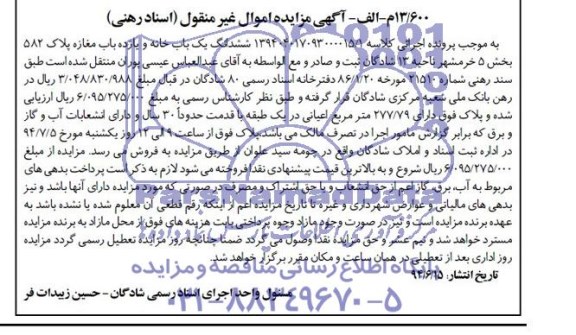 ۱۳/۶۰۰م-الف- آگهی مزایده اموال غیر منقول (اسناد رهنی)
به موجب پرونده اجرائی کلاسه ۱۳۹۴۰۴۰۱۷۰۹۳۰۰۰۰۱۵/۱ ششدانگ یک باب خانه و یازده باب مغازه پلاک ۵۸۲
بخش ۵ خرمشهر ناحیه ۱۳ شادگان ثبت و صادر و مع الواسطه به آقای عبدالعباس عیسی پوران منتقل شده است طبق
سند رهنی شماره ۲۱۵۱۰ مورخه ۸۶/۱/۲۰ دفترخانه اسناد رسمی ۸۰ شادگان در قبال مبلغ ۳/۰۴۸/۸۳۰/۹۸۸ ریال در
رهن بانک ملی شعبه مرکزی شادگان قرار گرفته و طبق نظر کارشناس رسمی به مبلغ ۶/۰۹۵/۲۷۵/۰۰۰ ریال ارزیابی
شده و پلاک فوق دارای ۲۷۷/۷۹ متر مربع اعیانی در یک طبقه با قدمت حدوداً ۳۰ سال و دارای انشعابات آب و گاز
و برق که برابر گزارش مامور اجرا در تصرف مالک می باشد.پلاک فوق از ساعت ۹ الی ۱۲ روز یکشنبه مورخ ۹۴/۷/۵
در اداره ثبت اسناد و املاک شادگان واقع در حومه سید علوان از طریق مزایده به فروش می رسد. مزایده از مبلغ
۶/۰۹۵/۲۷۵/۰۰۰ ریال شروع و به بالاترین قیمت پیشنهادی نقدا فروخته می شود لازم به ذکر است پرداخت بدهی های
مربوط به آب، برق، گاز اعم از حق انشعاب و یا حق اشتراک و مصرف در صورتی که مورد مزایده دارای آنها باشد و نیز
بدهی های مالیاتی و عوارض شهرداری و غیره تا تاریخ مزایده اعم از اینکه رقم قطعی آن معلوم شده یا نشده باشد به
عهده برنده مزایده است و نیز در صورت وجود مازاد وجوه پرداختی بابت هزینه های فوق از محل مازاد به برنده مزایده
مسترد خواهد شد و نیم عشر و حق مزایده نقدا وصول می گردد ضمنا چنانچه روز مزایده تعطیل رسمی گردد مزایده
روز اداری بعد از تعطیلی در همان ساعت و مکان مقرر برگزار خواهد شد.
تاریخ انتشار: ۹۴/۶/۱۵
مسئول واحد اجرای اسناد رسمی شادگان - حسین زبیدات فر
پایگاه اطلاع رسانی مناقصه و مزایده
۰۲۱-۸۸۳۴۹۶۷۰-۵